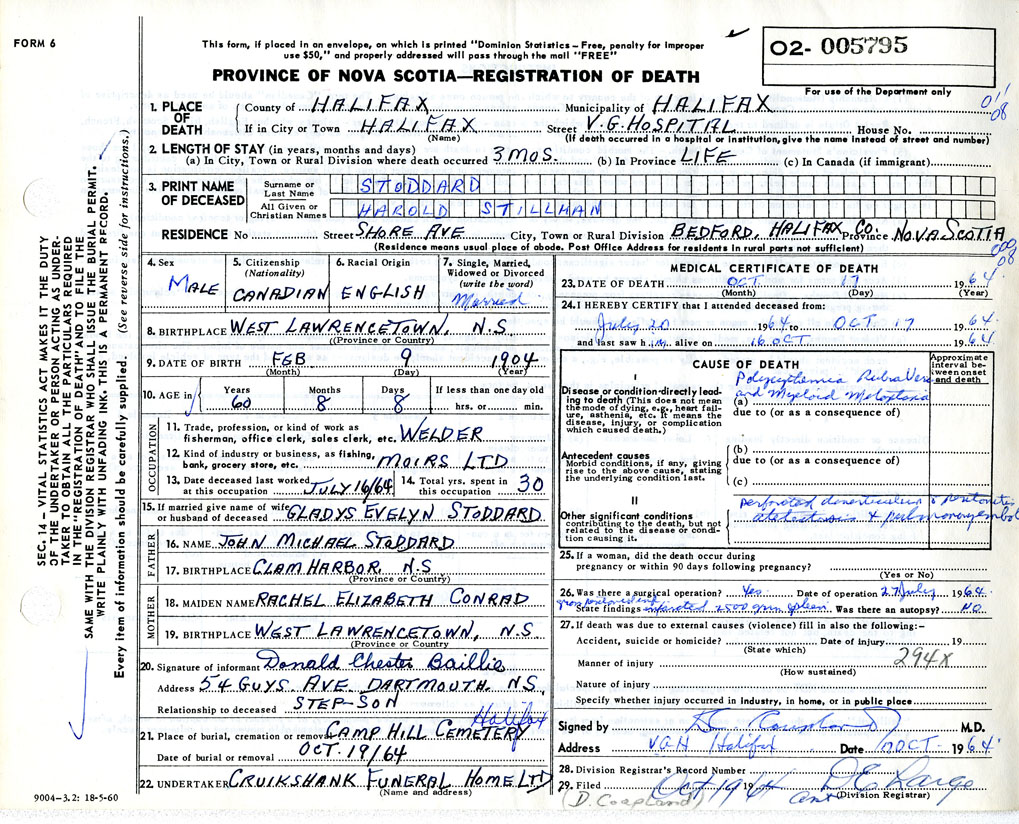 FORM 6
This form, if placed in an envelope, on which is printed "Dominion Statistics – Free, penalty for improper
use $50," and properly addressed will pass through the mail "FREE"
PROVINCE OF NOVA SCOTIA—REGISTRATION OF DEATH
O2- 005795
For use of the Department only
011
08
1. PLACE OF DEATH
County of HALIFAX Municipality of HALIFAX
If in City or Town HALIFAX Street V.G. HOSPITAL House No.
(Name) (If death occurred in a hospital or institution, give the name instead of street and number)
2. LENGTH OF STAY (in years, months and days)
(a) In City, Town or Rural Division where death occurred 3 MOS. (b) In Province LIFE (c) In Canada (if immigrant)
3. PRINT NAME OF DECEASED
Surname or Last Name STODDARD
All Given or Christian Names HAROLD STILLMAN
RESIDENCE No Street SHORE AVE City, Town or Rural Division BEDFORD, HALIFAX CO. Province NOVA SCOTIA
(Residence means usual place of abode. Post Office Address for residents in rural parts not sufficient)
000
08
4. Sex MALE
5. Citizenship (Nationality) CANADIAN
6. Racial Origin ENGLISH
7. Single, Married, Widowed or Divorced (write the word) Married
8. BIRTHPLACE WEST LAWRENCETOWN, N.S.
((Province or Country)
9. DATE OF BIRTH FEB 9 1904
(Month) (Day) (Year)
10. AGE in Years 60 Months 8 Days 8 If less than one day old hrs. or min.
OCCUPATION
11. Trade, profession, or kind of work as
fisherman, office clerk, sales clerk, etc. WELDER
12. Kind of industry or business, as fishing,
bank, grocery store, etc. MOIRS LTD
13. Date deceased last worked at this occupation JULY 16/64
14. Total yrs. spent in this occupation 30
15. If married give name of wife or husband of deceased GLADYS EVELYN STODDARD
FATHER
16. NAME JOHN MICHAEL STODDARD
17. BIRTHPLACE CLAM HARBOR, N.S
(Province or Country)
MOTHER
18. MAIDEN NAME RACHEL ELIZABETH CONRAD
19. BIRTHPLACE WEST LAWRENCETOWN, N.S.
(Province or Country
20. Signature of informant Donald Chester Baillie
Address 54 GUYS. AVE DARTMOUTH. N.S,
Relationship to deceased STEP-SON
Halifax
21. Place of burial, cremation or removal CAMP HILL CEMETERY
Date of burial or removal OCT. 19/64
22. UNDERTAKER CRUIKSHANK FUNERAL HOME LTD
(Name and address)
MEDICAL CERTIFICATE OF DEATH
23. DATE OF DEATH OCT 17 1964.
(Month) (Day) (Year)
24. I HEREBY CERTIFY that I attended deceased from:
July 20 1964 to OCT 17 1964.
and last saw him alive on 16 OCT 1964
CAUSE OF DEATH
Approximate interval between onset and death
I
Disease or condition directly leading to death (This does not mean the mode of dying, e.g., heart failure, asthenia, etc. It means the disease, injury, or complication which caused death.)
Polycythemia Rubra Vera
(a) and Myeloid Metaplasia
due to (or as a consequence of)
Antecedent causes
Morbid conditions, if any, giving rise to the above cause, stating the underlying condition last.
(b)
due to (or as a consequence of)
(c)
II
Other significant conditions
contributing to the death, but not related to the disease or condition causing it.
perforated & peritonitis
& pulmonary embol
25. If a woman, did the death occur during
pregnancy or within 90 days following pregnancy?
(Yes or No)
26. Was there a surgical operation? Yes Date of operation 27 July 1964.
State findings infarcted 2500 gram spleen. Was there an autopsy? NO.
27. If death was due to external causes (violence) fill in also the following:–
Accident, suicide or homicide? Date of injury 19
(State which)
294X
Manner of injury
(How sustained)
Nature of injury
Specify whether injury occurred in industry, in home, or in public place
Signed by M.D.
Address VGH Halifax Date 17 OCT 1964.
28. Division Registrar's Record Number
29. Filed Oct 19 1964
(Division Registrar)
(D. Coapland)
SEC. 14 – VITAL STATISTICS ACT MAKES IT THE DUTY
OF THE UNDERTAKER OR PERSON ACTING AS UNDER-
TAKER TO OBTAIN ALL THE PARTICULARS REQUIRED
IN THE "REGISTRATION OF DEATH" AND TO FILE THE
SAME WITH THE DIVISION REGISTRAR WHO SHALL ISSUE THE BURIAL PERMIT.
WRITE PLAINLY WITH UNFADING INK. THIS IS A PERMANENT RECORD.
Every item of information should be carefully supplied. (See reverse side for instructions.)
9004-3.2: 18-5-60